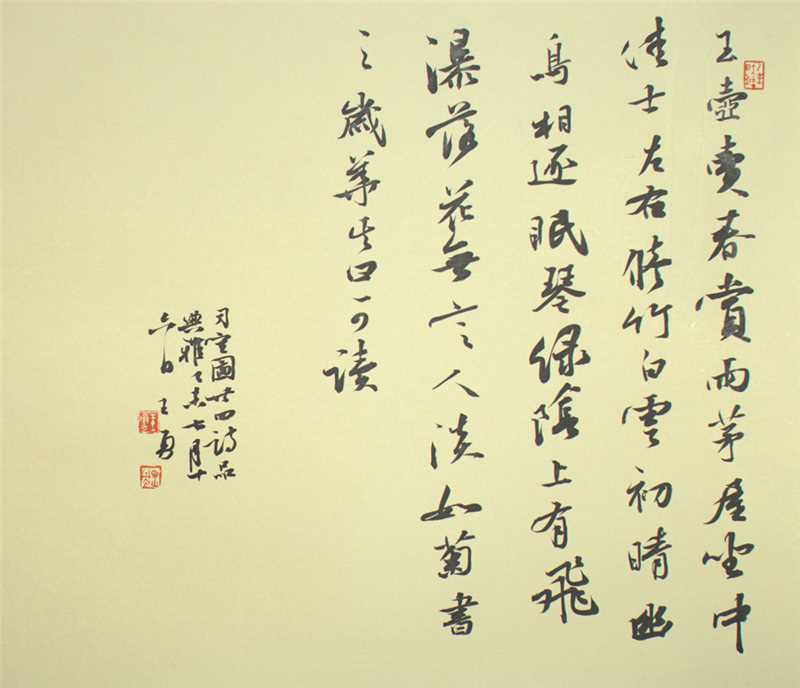 玉壺賣春賞雨茅屋坐中
佳士左右脩竹白雲初晴幽
鳥相逐眠琴綠陰上有飛
瀑落花無言人淡如菊書
之歲華其曰可讀
司空圖廿四詩品
典雅乙未七月十
六日王勇